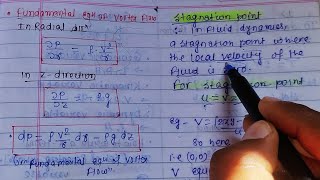 Fundamental eqn of vortex flow
In Radial dirn
∂P/∂r = ρ v²/r
In z-direction
∂P/∂z = ρ.g
dp = ρ v²/r dr - ρg dz
"fundamental eqn of vortex
flow"
Stagnation point
In fluid dynamics
a stagnation point where
the local velocity of the
fluid is zero.
For stagnation point
u = v =
eg - V =
So here
i.e (0,0)
V equ